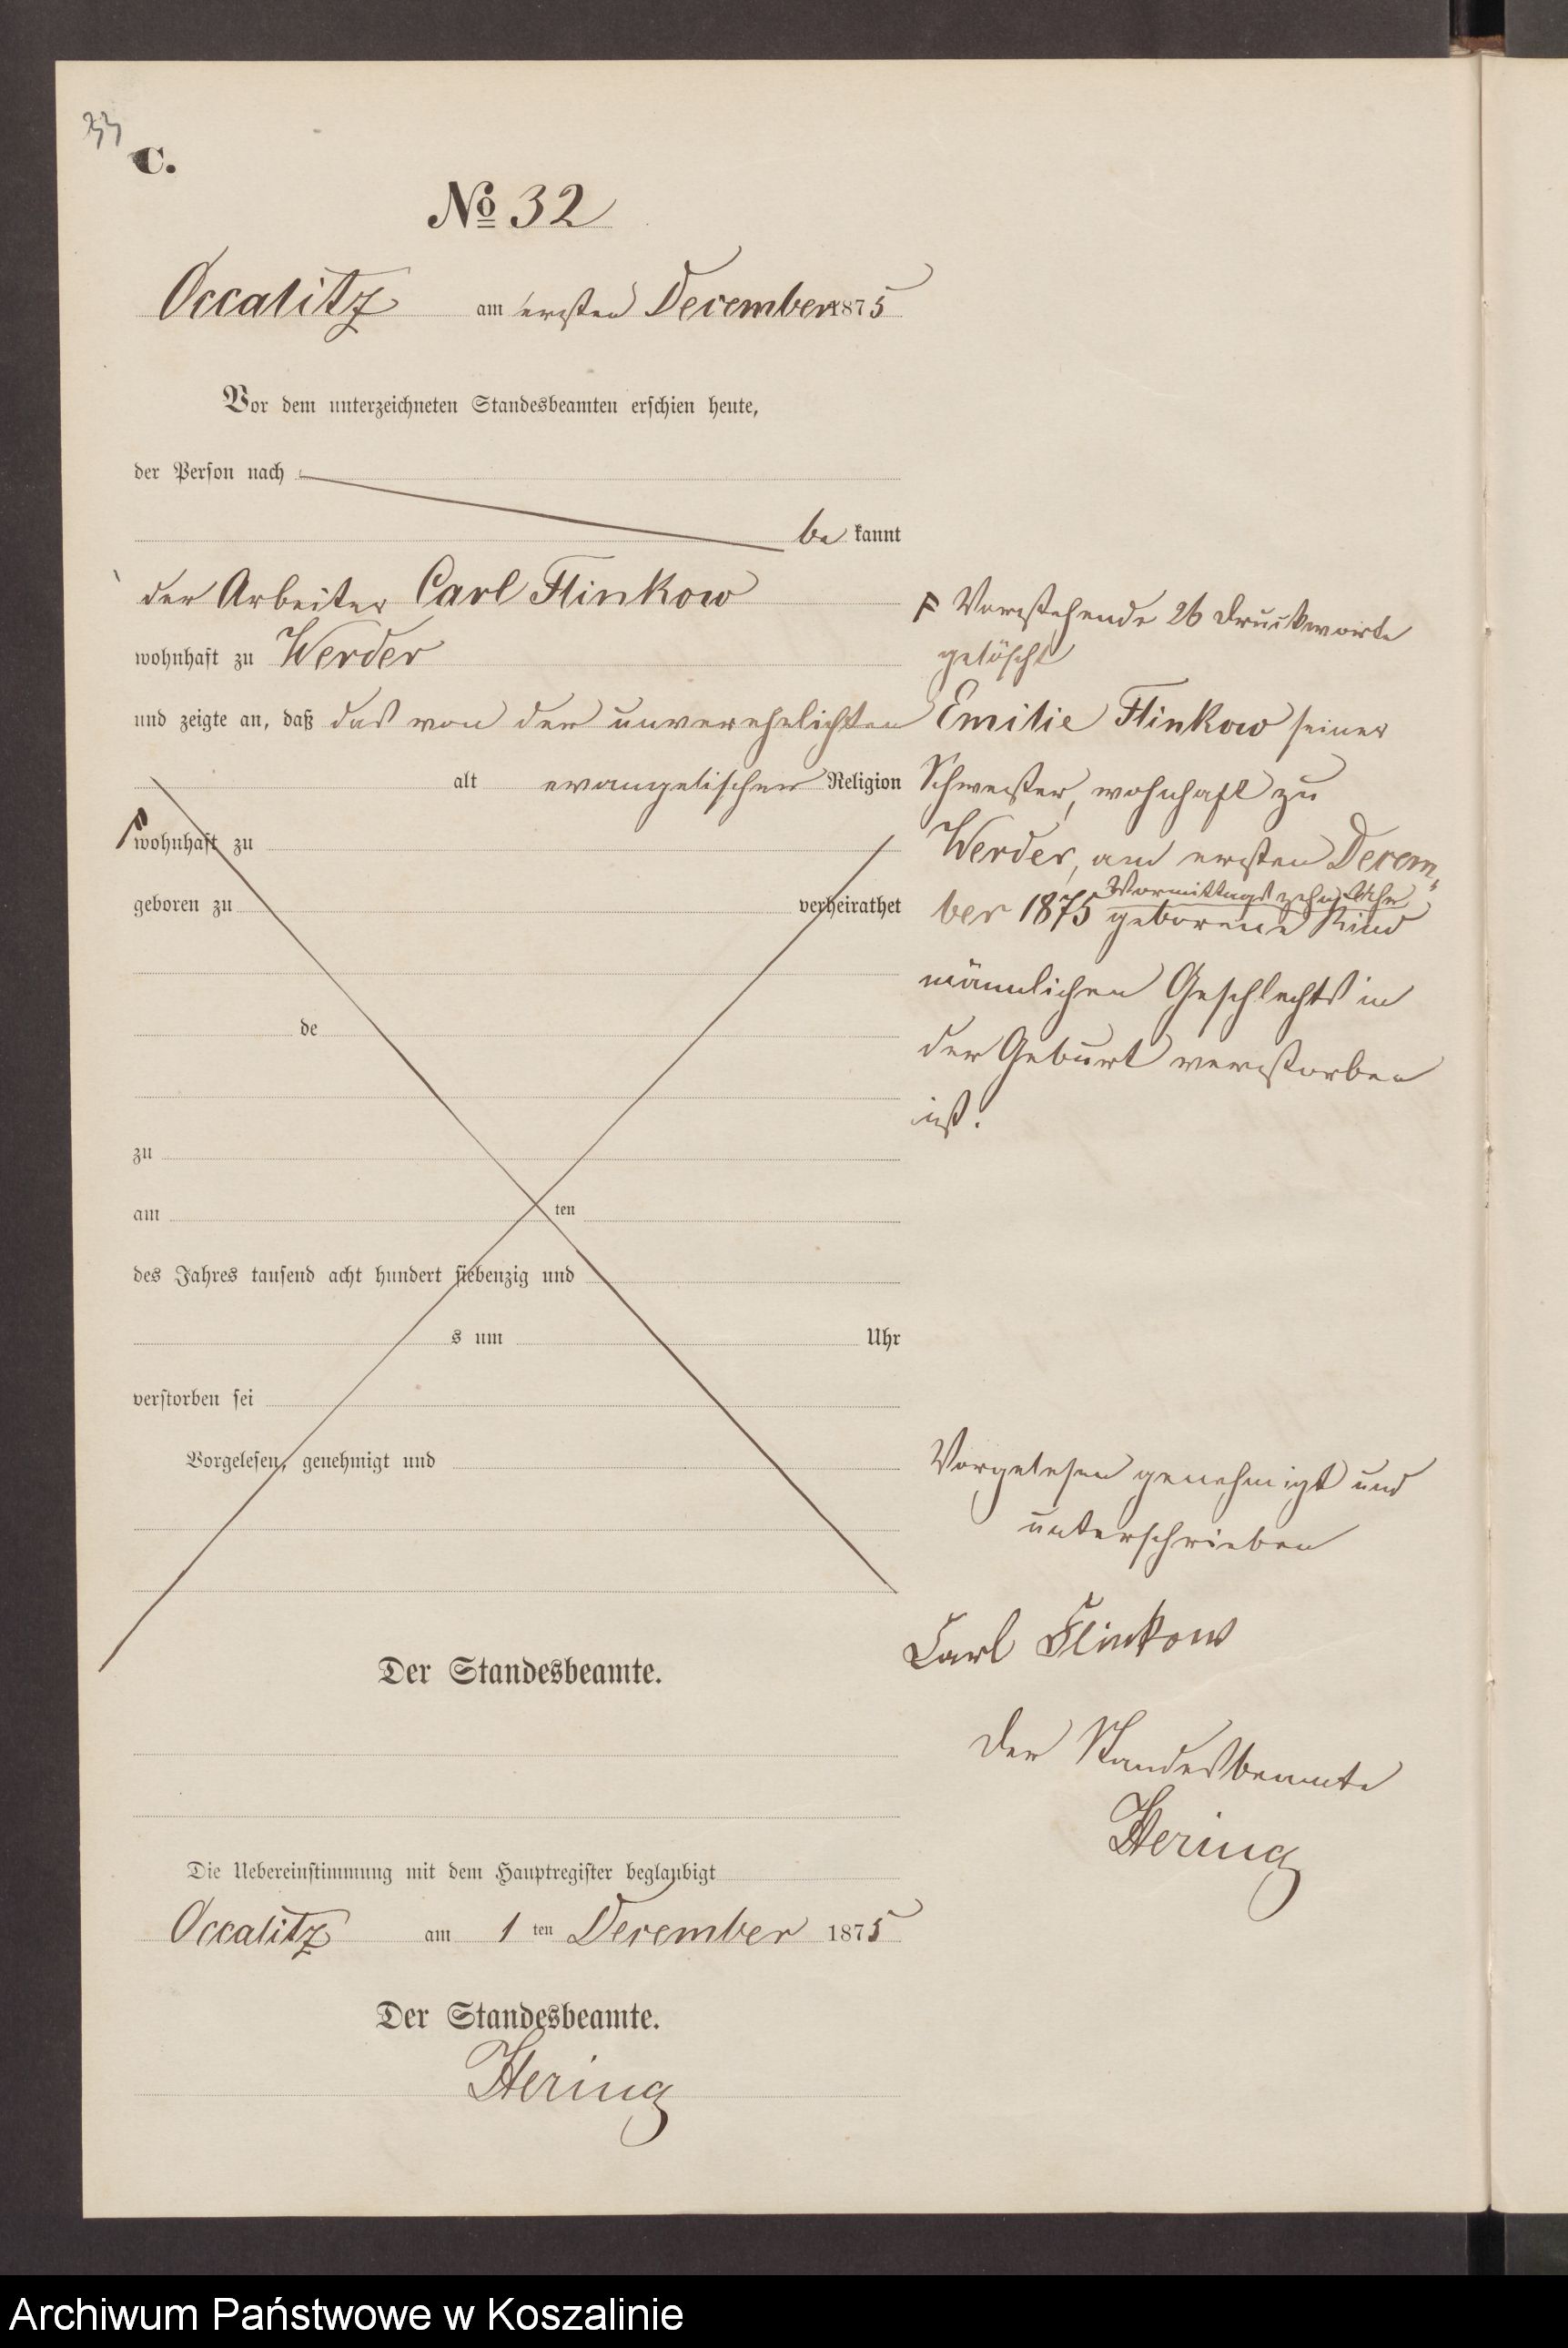 33
C.
No 32
Occalitz am ersten December 1875
Vor dem unterzeichneten Standesbeamten erschien heute,
der Person nach
be kannt
der Arbeiter Carl Flinkow
wohnhaft zu Werder
und zeigte an, daß das von der unverehelichten
alt evangelischer Religion
wohnhaft zu
geboren zu verheirathet
de
zu
am ten
des Jahres tausend acht hundert siebenzig und
s um Uhr
verstorben sei
Vorgelesen, genehmigt und
Der Standesbeamte.
Die Uebereinstimmung mit dem Hauptregister beglaubigt
Occalitz am 1 ten December 1875
Der Standesbeamte.
Hering
Vorstehende 26 Druckworte
gelöscht
Emilie Flinkow seiner
Schwester, wohnhaft zu
Werder, am ersten Decem-
Vormittags zehn Uhr
ber 1875 geborene Kind
männlichen Geschlechts in
der Geburt verstorben
ist.
Vorgelesen genehmigt und
unterschrieben
Carl Flinkow
Der Standesbeamte
Hering
Archiwum Państwowe w Koszalinie